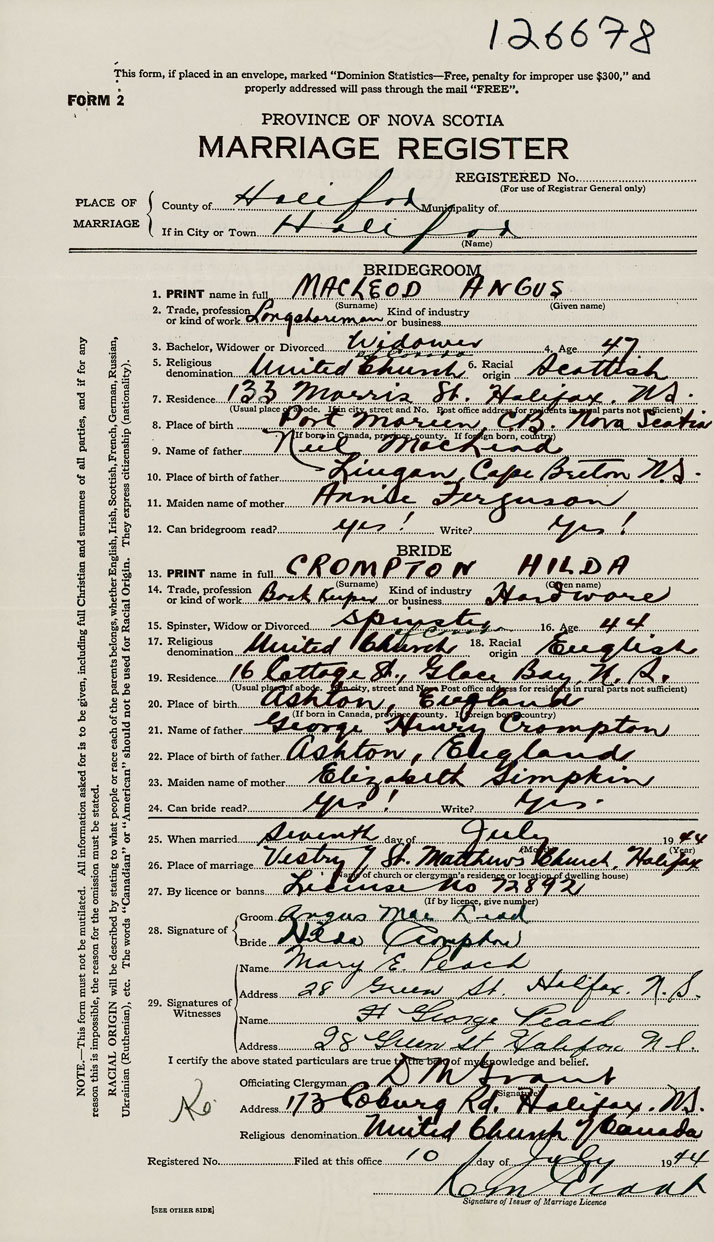 126678
This form, if placed in an envelope, marked "Dominion Statistics—Free, penalty for improper use $300," and
properly addressed will pass through the mail "FREE".
FORM 2
PROVINCE OF NOVA SCOTIA
MARRIAGE REGISTER
REGISTERED No.
(For use of Registrar General only)
PLACE OF MARRIAGE
County of Halifax Municipality of
If in City or Town Halifax
(Name)
BRIDEGROOM
1. PRINT name in full MACLEOD ANGUS
(Surname) (Given name)
2. Trade, profession or kind of work Longshoreman Kind of industry or business
3. Bachelor, Widower or Divorced Widower 4. Age 47
5. Religious denomination United Church 6. Racial origin Scottish
7. Residence 133 Morris St. Halifax. N.S.
(Usual place of abode. If in city, street and No. Post office address for residents in rural parts not sufficient)
8. Place of birth Port Morien, C.B. Nova Scotia
(If born in Canada, province, county. If foreign born, country)
9. Name of father Neil MacLeod
10. Place of birth of father Lingan, Cape Breton N.S.
11. Maiden name of mother Annie Ferguson
12. Can bridegroom read? yes! Write? Yes!
BRIDE
13. PRINT name in full CROMPTON HILDA
(Surname) (Given name)
14. Trade, profession or kind of work Book Keeper Kind of industry or business Hardware
15. Spinster, Widow or Divorced Spinster 16. Age 44
17. Religious denomination United Church 18. Racial origin English
19. Residence 16 Cottage St., Glace Bay, N.S.
(Usual place of abode. If in city, street and No. Post office address for residents in rural parts not sufficient)
20. Place of birth Ashton, England
(If born in Canada, province, county. If foreign born, country)
21. Name of father George Henry Crompton
22. Place of birth of father Ashton, England
23. Maiden name of mother Elizabeth Simpkin
24. Can bride read? Yes! Write? Yes.
25. When married Seventh day of July 1944
(Month) (Year)
26. Place of marriage Vestry of St. Matthew's Church, Halifax
(Name of church or clergyman's residence or location of dwelling house)
27. By licence or banns License No 72892
(If by licence, give number)
28. Signature of
Groom Angus MacLeod
Bride Hilda Crompton
29. Signatures of Witnesses
Name Mary E Peach
Address 28 Green St. Halifax. N.S.
Name George Peach
Address 28 Green St Halifax N.S.
I certify the above stated particulars are true to the best of my knowledge and belief.
Officiating Clergyman D M Grant
(Signature)
Address 173 Coburg Rd. Halifax. N.S.
Religious denomination United Church of Canada
Registered No. Filed at this office 10 day of July 1944
Signature of Issuer of Marriage Licence
[SEE OTHER SIDE]
NOTE.—This form must not be mutilated. All information asked for is to be given, including full Christian and surnames of all parties, and if for any
reason this is impossible, the reason for the omission must be stated.
RACIAL ORIGIN will be described by stating to what people or race each of the parents belongs, whether English, Irish, Scottish, French, German, Russian,
Ukrainian (Ruthenian), etc. The words "Canadian" or "American" should not be used for Racial Origin. They express citizenship (nationality).